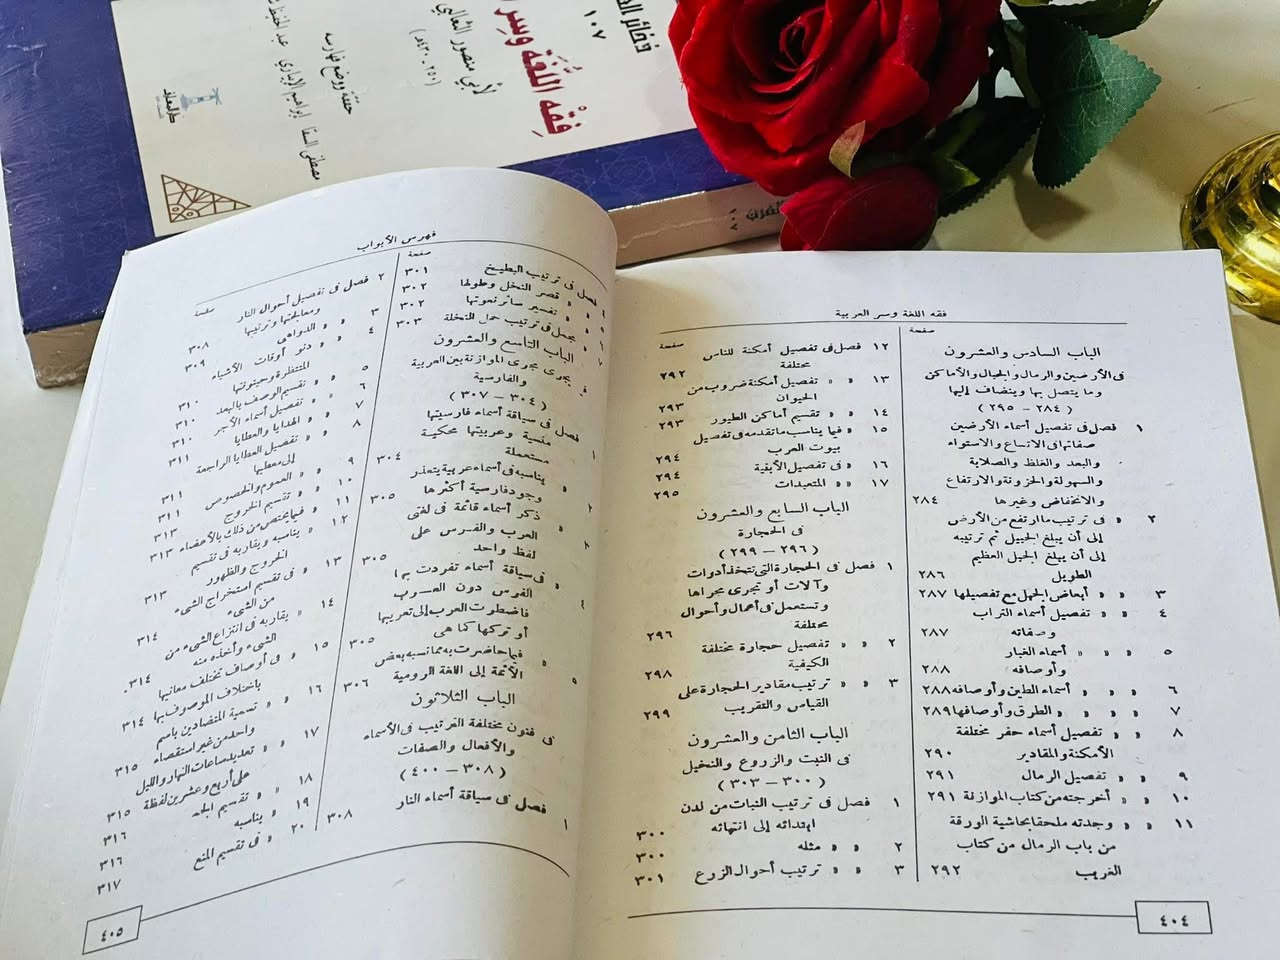 ذخائر العرب
١٠٧
فقه اللغة وسر
لأبي منصور الثعالبي
(٣٥٠ - ٤٣٠هـ)
حققه ووضع فهارسه
مصطفى السقا إبراهيم الإبياري عبد الحفيظ
فقه اللغة وسر العربية
صفحة
الباب السادس والعشرون
فى الأرضين والرمال والجبال والأماكن
وما يتصل بها وينضاف إليها
(٢٨٤ – ٢٩٥)
١ فصل فى تفصيل أسماء الأرضين
صفاتها فى الاتساع والاستواء
والبعد والغلظ والصلابة
والسهولة والحزونة والارتفاع
والانخفاض وغيرها ٢٨٤
٢ » فى ترتيب ما ارتفع من الأرض
إلى أن يبلغ الجبيل ثم ترتيبه
إلى أن يبلغ الجبل العظيم
الطويل ٢٨٦
٣ » » أبعاض الجبل مع تفصيلها ٢٨٧
٤ » » تفصيل أسماء التراب
وصفاته ٢٨٧
٥ » » » أسماء الغبار
وأوصافه ٢٨٨
٦ » » » أسماء الطين وأوصافه ٢٨٨
٧ » » » الطرق وأوصافها ٢٨٩
٨ » » تفصيل أسماء حفر مختلفة
الأمكنة والمقادير ٢٩٠
٩ » » تفصيل الرمال ٢٩١
١٠ » » أخرجته من كتاب الموازنة ٢٩١
١١ » » وجدته ملحقا بحاشية الورقة
من باب الرمال من كتاب
الغريب ٢٩٢
صفحة
١٢ فصل فى تفصيل أمكنة للناس
مختلفة ٢٩٢
١٣ » » تفصيل أمكنة ضروب من
الحيوان ٢٩٣
١٤ » » تقسيم أماكن الطيور ٢٩٣
١٥ » » فيما يناسب ما تقدمه فى تفصيل
بيوت العرب ٢٩٤
١٦ » » فى تفصيل الأبنية ٢٩٤
١٧ » » المتعبدات ٢٩٥
الباب السابع والعشرون
فى الحجارة
(٢٩٦ – ٢٩٩)
١ فصل فى الحجارة التى تتخذ أدوات
وآلات أو تجرى مجراها
وتستعمل فى أعمال وأحوال
مختلفة ٢٩٦
٢ » » تفصيل حجارة مختلفة
الكيفية ٢٩٨
٣ » » ترتيب مقادير الحجارة على
القياس والتقريب ٢٩٩
الباب الثامن والعشرون
فى النبت والزروع والنخيل
(٣٠٠ – ٣٠٣)
١ فصل فى ترتيب النبات من لدن
ابتدائه إلى انتهائه ٣٠٠
٢ » » مثله ٣٠٠
٣ » » ترتيب أحوال الزرع ٣٠١
٤٠٤
فهرس الأبواب
صفحة
فصل فى ترتيب البطيخ ٣٠١
» » قصر النخل وطولها ٣٠٢
» » تفسير سائر نعوتها ٣٠٢
» مجمل فى ترتيب حمل النخلة ٣٠٣
الباب التاسع والعشرون
فيما يجرى مجرى الموازنة بين العربية
والفارسية
(٣٠٤ – ٣٠٧)
١ فصل فى سياقة أسماء فارسيتها
منسية وعربيتها محكية
مستعملة ٣٠٤
٢ » يناسبه فى أسماء عربية يتعذر
وجود فارسية أكثرها ٣٠٥
٣ » ذكر أسماء قائمة فى لغتى
العرب والفرس على
لفظ واحد ٣٠٥
٤ » فى سياقة أسماء تفردت بها
الفرس دون العرب
فاضطرت العرب إلى تعريبها
أو تركها كما هى ٣٠٥
٥ » فيما حاضرت به مما نسبه بعض
الأئمة إلى اللغة الرومية ٣٠٦
الباب الثلاثون
فى فنون مختلفة الترتيب فى الأسماء
والأفعال والصفات
(٣٠٨ – ٤٠٠)
١ فصل فى سياقة أسماء النار ٣٠٨
صفحة
٢ فصل فى تفصيل أحوال النار
ومعالجتها وترتيبها ٣٠٨
٣ » » الدواهى ٣٠٩
٤ » » دنو أوقات الأشياء
المنتظرة وحينونتها ٣١٠
٥ » » تقسيم الوصف بالبعد ٣١٠
٦ » » تفصيل أسماء الأجر ٣١٠
٧ » » الهدايا والعطايا ٣١١
٨ » » تفصيل العطايا الراجعة
إلى معطيها ٣١١
٩ » » العموم والخصوص ٣١١
١٠ » » تقسيم الخروج ٣١٣
١١ » فيما يختص من ذلك بالأعضاء ٣١٣
١٢ » يناسبه ويقاربه فى تقسيم
الخروج والظهور ٣١٣
١٣ » فى تقسيم استخراج الشىء
من الشىء ٣١٤
١٤ » يقاربه فى انتزاع الشىء من
الشىء وأخذه منه ٣١٤
١٥ » فى أوصاف تختلف معانيها
باختلاف الموصوف بها ٣١٤
١٦ » » تسمية المتضادين باسم
واحد من غير استقصاء ٣١٥
١٧ » » تعديد ساعات النهار والليل
على أربع وعشرين لفظة ٣١٥
١٨ » » تقسيم الجمع ٣١٦
١٩ » يناسبه ٣١٦
٢٠ » فى تقسيم المنع ٣١٧
٤٠٥